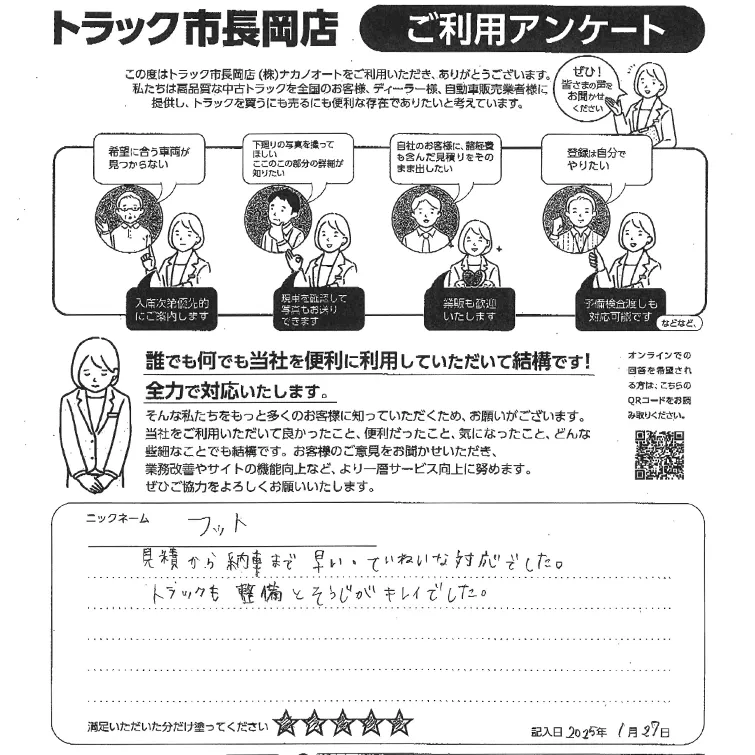 トラック市長岡店 ご利用アンケート
この度はトラック市長岡店(株)ナカノオートをご利用いただき、ありがとうございます。
私たちは高品質な中古トラックを全国のお客様、ディーラー様、自動車販売業者様に
提供し、トラックを買うにも売るにも便利な存在でありたいと考えています。
ぜひ!
皆さまの声を
お聞かせ
ください
希望に合う車両が
見つからない
下廻りの写真を撮って
ほしい
ここのこの部分の詳細が
知りたい
自社のお客様に、諸経費
も含んだ見積りをその
まま出したい
登録は自分で
やりたい
入庫次第優先的
にご案内します
現車を確認して
写真もお送り
できます
業販も歓迎
いたします
予備検査渡しも
対応可能です
などなど、
誰でも何でも当社を便利に利用していただいて結構です!
全力で対応いたします。
そんな私たちをもっと多くのお客様に知っていただくため、お願いがございます。
当社をご利用いただいて良かったこと、便利だったこと、気になったこと、どんな
些細なことでも結構です。お客様のご意見をお聞かせいただき、
業務改善やサイトの機能向上など、より一層サービス向上に努めます。
ぜひご協力をよろしくお願いいたします。
オンラインでの
回答を希望され
る方は、こちらの
QRコードをお読
み取りください。
ニックネーム フット
見積から納車まで早い、ていねいな対応でした。
トラックも整備とそうじがキレイでした。
満足いただいた分だけ塗ってください
記入日 2025年 1月27日